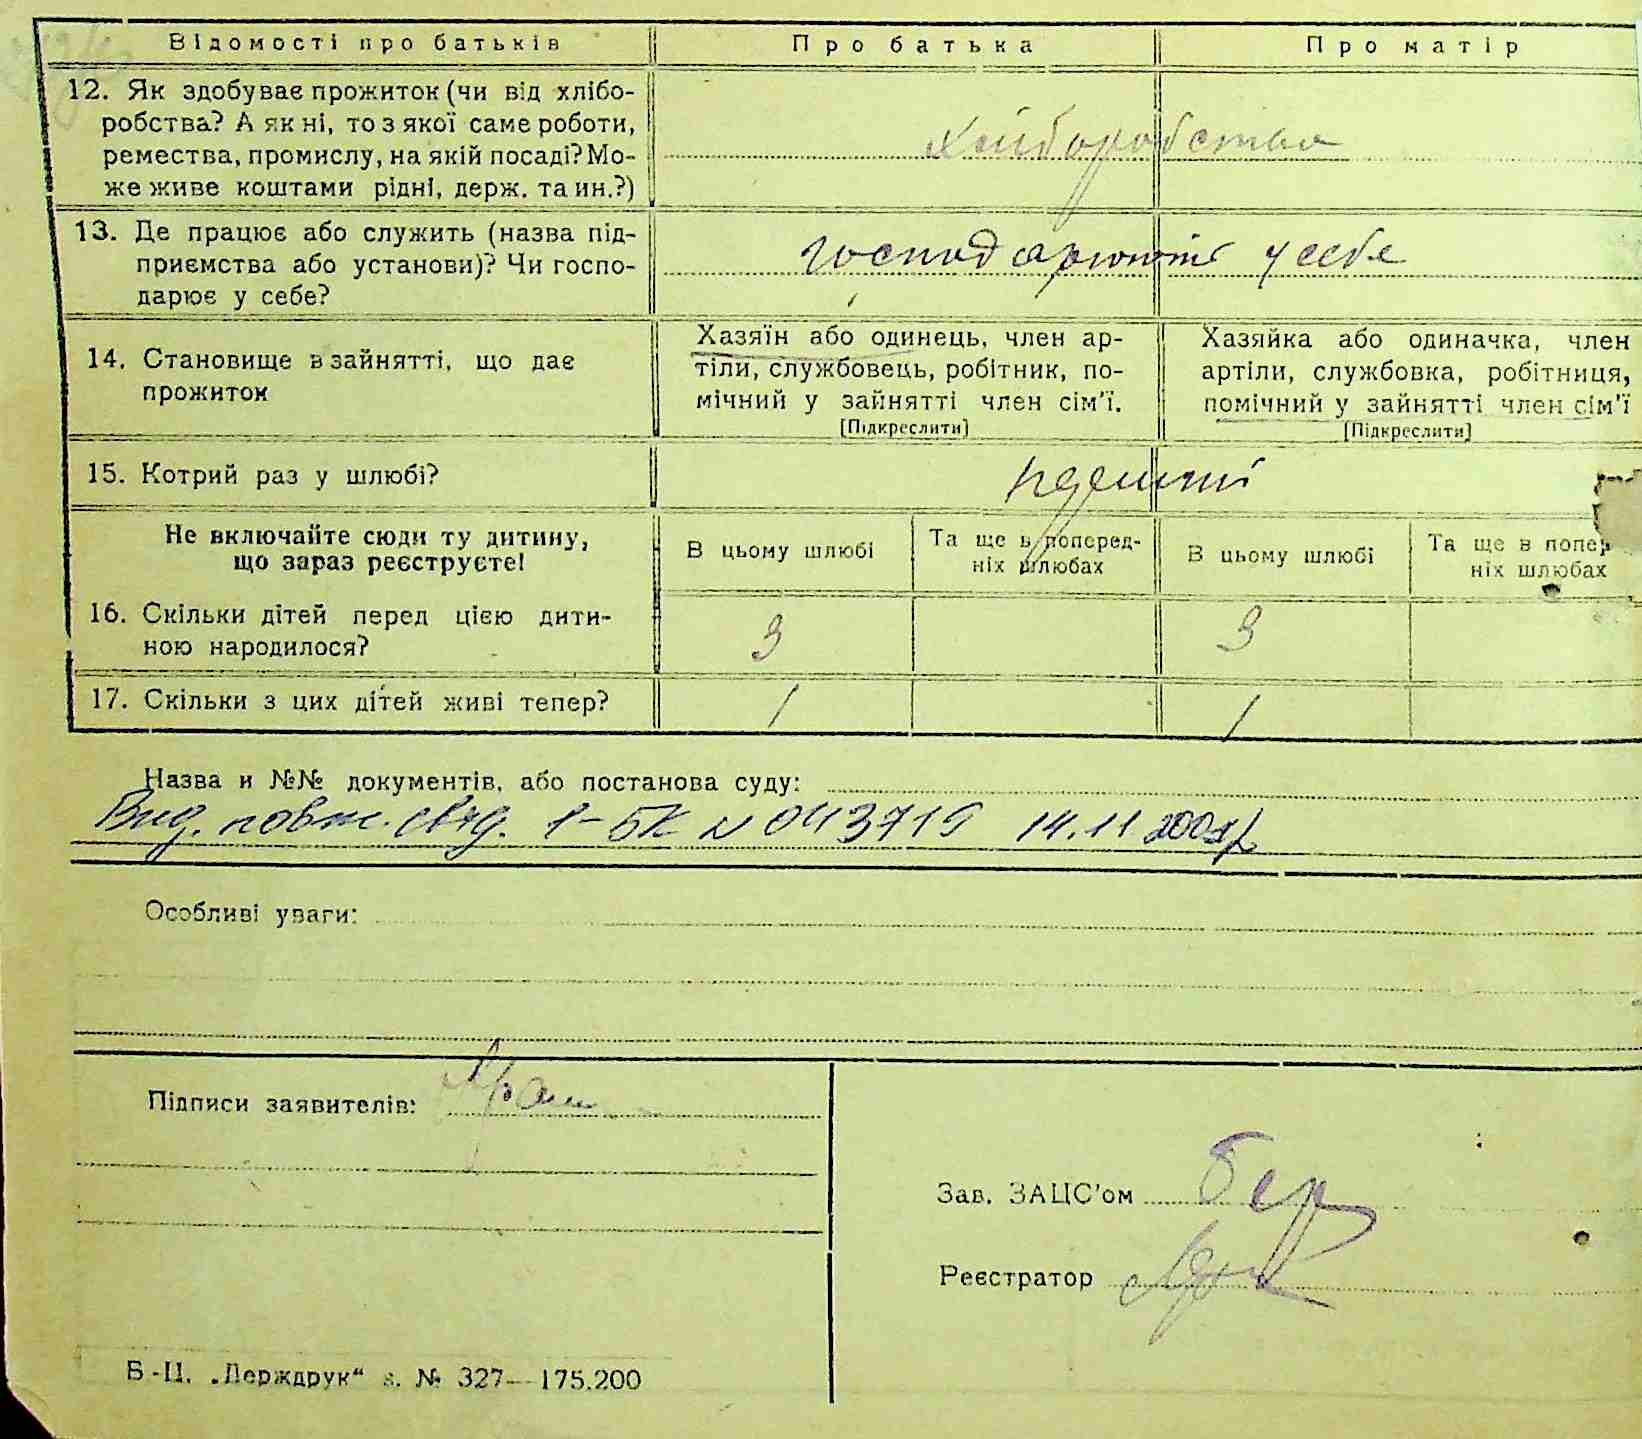 Відомості про батьків
Про батька
Про матір
12. Як здобуває прожиток (чи від хлібо-
робства? А як ні, то з якої саме роботи,
ремества, промислу, на якій посаді? Мо-
же живе коштами рідні, держ. та ин.?)
хліборобство
13. Де працює або служить (назва під-
приємства або установи)? Чи госпо-
дарює у себе?
господарюють у себе
14. Становище в зайнятті, що дає
прожиток
Хазяїн або одинець, член ар-
тіли, службовець, робітник, по-
мічний у зайнятті член сім'ї.
[Підкреслити]
Хазяйка або одиначка, член
артіли, службовка, робітниця,
помічний у зайнятті член сім'ї
[Підкреслити]
15. Котрий раз у шлюбі?
Не включайте сюди ту дитину,
що зараз реєструєте!
В цьому шлюбі
Та ще в поперед-
ніх шлюбах
В цьому шлюбі
Та ще в попер
ніх шлюбах
16. Скільки дітей перед цією дити-
ною народилося?
3
3
17. Скільки з цих дітей живі тепер?
1
1
Назва и №№ документів, або постанова суду:
Вид. повт. свід. 1-БК № 043719 14.11
Особливі уваги:
Підписи заявителів:
Зав. ЗАЦС'ом
Реєстратор
Б-Ц. „Держдрук“ з. № 327—175.200